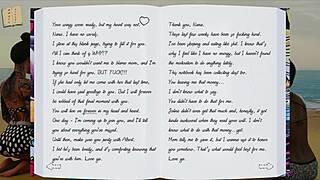 Your wings were ready, but my heart was not.
Nana, I have no words.
I stare at this blank page, trying to fill it for you.
All I can think of is WHY??
I know you wouldn't want me to blame mom, and I'm
trying so hard for you, BUT FUCK!!!
If she had only let me come with her that last time,
I could have said goodbye to you. But I will forever
be robbed of that final moment with you.
You will live on forever in my head and heart.
One day - I'm coming up to join you, and I'll tell
you about everything you've missed.
Until then, make sure you party with Albert.
I bet he's been lonely, and it's comforting knowing that
you're with him. Love ya.
Thank you, Nana.
These last few weeks have been so fucking hard.
I've been sleeping and eating like shit. I know that's
why I feel like I have no energy, but I still have
no motivation to do anything.
This notebook has been collecting dust too.
You leaving me that money...
I don't know what to say.
You didn't have to do that for me.
Jaime didn't even get that much and, honestly, it got
kinda awkward when they read your will. I don't
know what to do with that money, yet.
Mom tells me to save it, but I wanna use it to honor
you somehow. That's what would feel best for me.
Love ya.